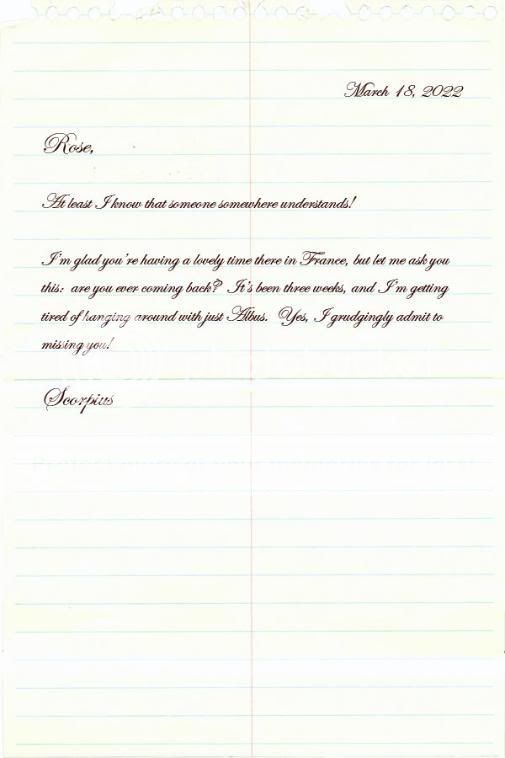 March 18, 2022
Rose,
At least I know that someone somewhere understands!
I'm glad you're having a lovely time there in France, but let me ask you
this: are you ever coming back? It's been three weeks, and I'm getting
tired of hanging around with just Albus. Yes, I grudgingly admit to
missing you!
Scorpius